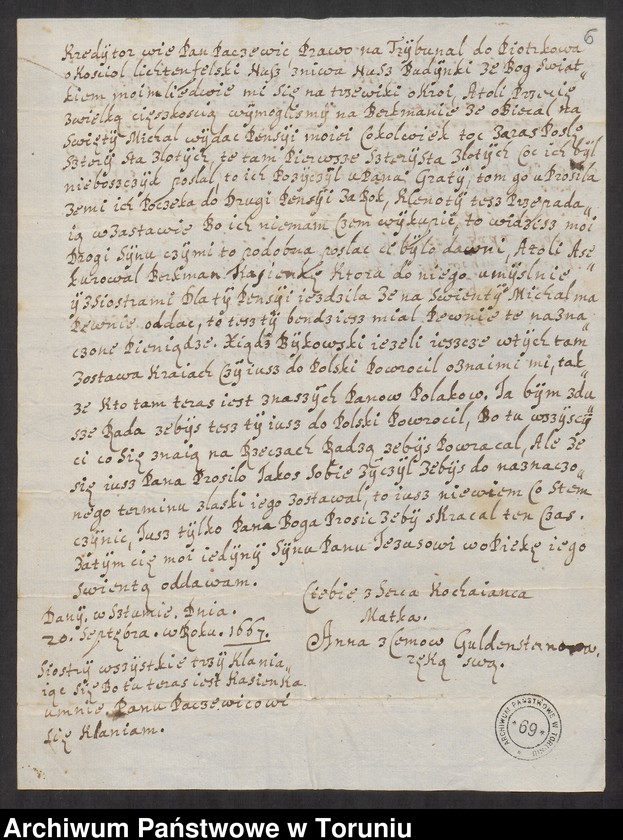 6
Kredÿtor wie Pan Paczewic, Prawo na Trÿbunal do Piotrkowa
o Kosciol lichtenfelski Nusz zniwa Nusz Budÿnki Ze Bog Swiat„
kiem moim ledwie mi się na trzewiki okroi, Atoli Przecie
zwielką cięszkoscią wÿmoglismÿ na Berkmanie Ze obiecal na
Swiętÿ Michal wÿdac Pensÿi moiei Cokolwiek toc Zaras Posle
Szterÿ sta Zlotÿch, te tam Pierwsze Szterÿsta Zlotÿch Coc ich bÿl
nieboszczÿk poslal, to ich Pozÿczÿl u Pana Gratÿ, tom go uProsila
Zemi ich Poczeka do Drugi Pensÿi Za Rok, Klenotÿ tesz Przepada„
ią w Zastawie Bo ich niemam Czem wÿkupic, to widzisz moi
Drogi Sÿnu czÿmi to podobna poslac ci bÿlo dawni, Atoli Ase„
kurowal Berkman Kasienkę Ktora do niego umÿslnie
ÿ zSiostrami Dla tÿ Pensÿi iezdzila Ze na Swientÿ Michal ma
Pewnie oddac, to tesz tÿ bendziesz mial Pewnie te nazna„
czone Pieniądze. Xiądz Bÿkowski iezeli ieszcze wtÿch tam
Zostawa Kraiach Czÿ iusz do Polski Powrocil oznaimi mi, tak
Ze Kto tam teras iest znaszÿch Panow Polakow. Ia bÿm zdu„
sze Rada zebÿs tesz tÿ iusz do Polski Powrocil, Bo tu wszÿscÿ
ci co się znaią na Rzeczach Radzą zebÿs Powracal, Ale Ze
się iusz Pana Prosilo Iakos Sobie Zÿczÿl Zebÿs do naznaczo„
nego terminu zlaski iego Zostawal, to iusz niewiem Co Stem
czÿnic, Iusz tÿlko Pana Boga Prosic Zebÿ skracal ten Czas.
Zatÿm cię moi iedÿnÿ Sÿnu Panu Iezusowi w oPiekę iego
Swientą oddawam.
Ciebie z Serca Kochaianca
Matka.
Anna z Cemow Guldensternowa,
ręką swą.
Danÿ, w Sztumie, Dnia.
20. Septębra. w Roku. 1667.
Siostrÿ wszÿstkie trzÿ Klania„
ią Się Bo tu teras iest Kasienka
umnie, Panu Paczewicowi
się Klaniam.
ARCHIWUM PAŃSTWOWE W TORUNIU
* 69 *
Archiwum Państwowe w Toruniu